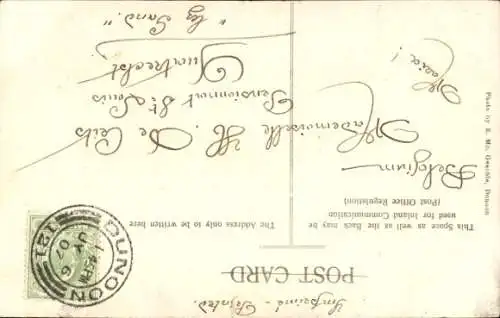 Imprimé - Printed
POST CARD
This Space as well as the Back may be
used for Inland Communication
(Post Office Regulation)
The Address only to be written here
DUNOON
JY 6
07
121
Belgium
Maria!
Mademoiselle H. De
Pensionnat St. Louis
Quatrecht
"lez Gand."
Photo by E. Mc. Geachie, Dunoon